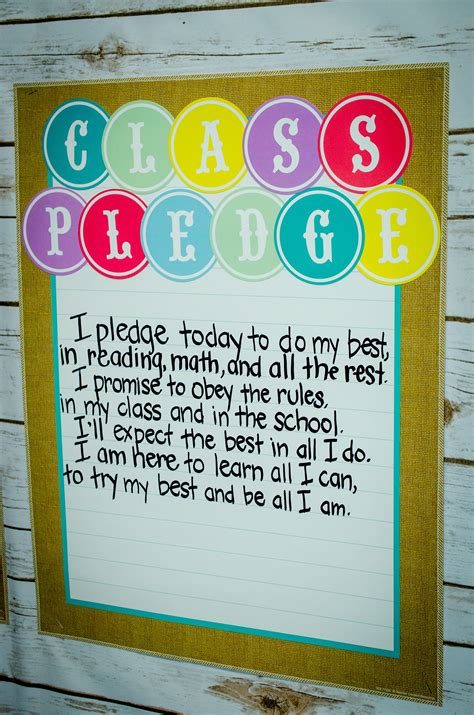 CLASS
PLEDGE
I pledge today to do my best,
in reading, math, and all the rest.
I promise to obey the rules,
in my class and in the school.
I'll expect the best in all I do.
I am here to learn all I can,
to try my best and be all I am.